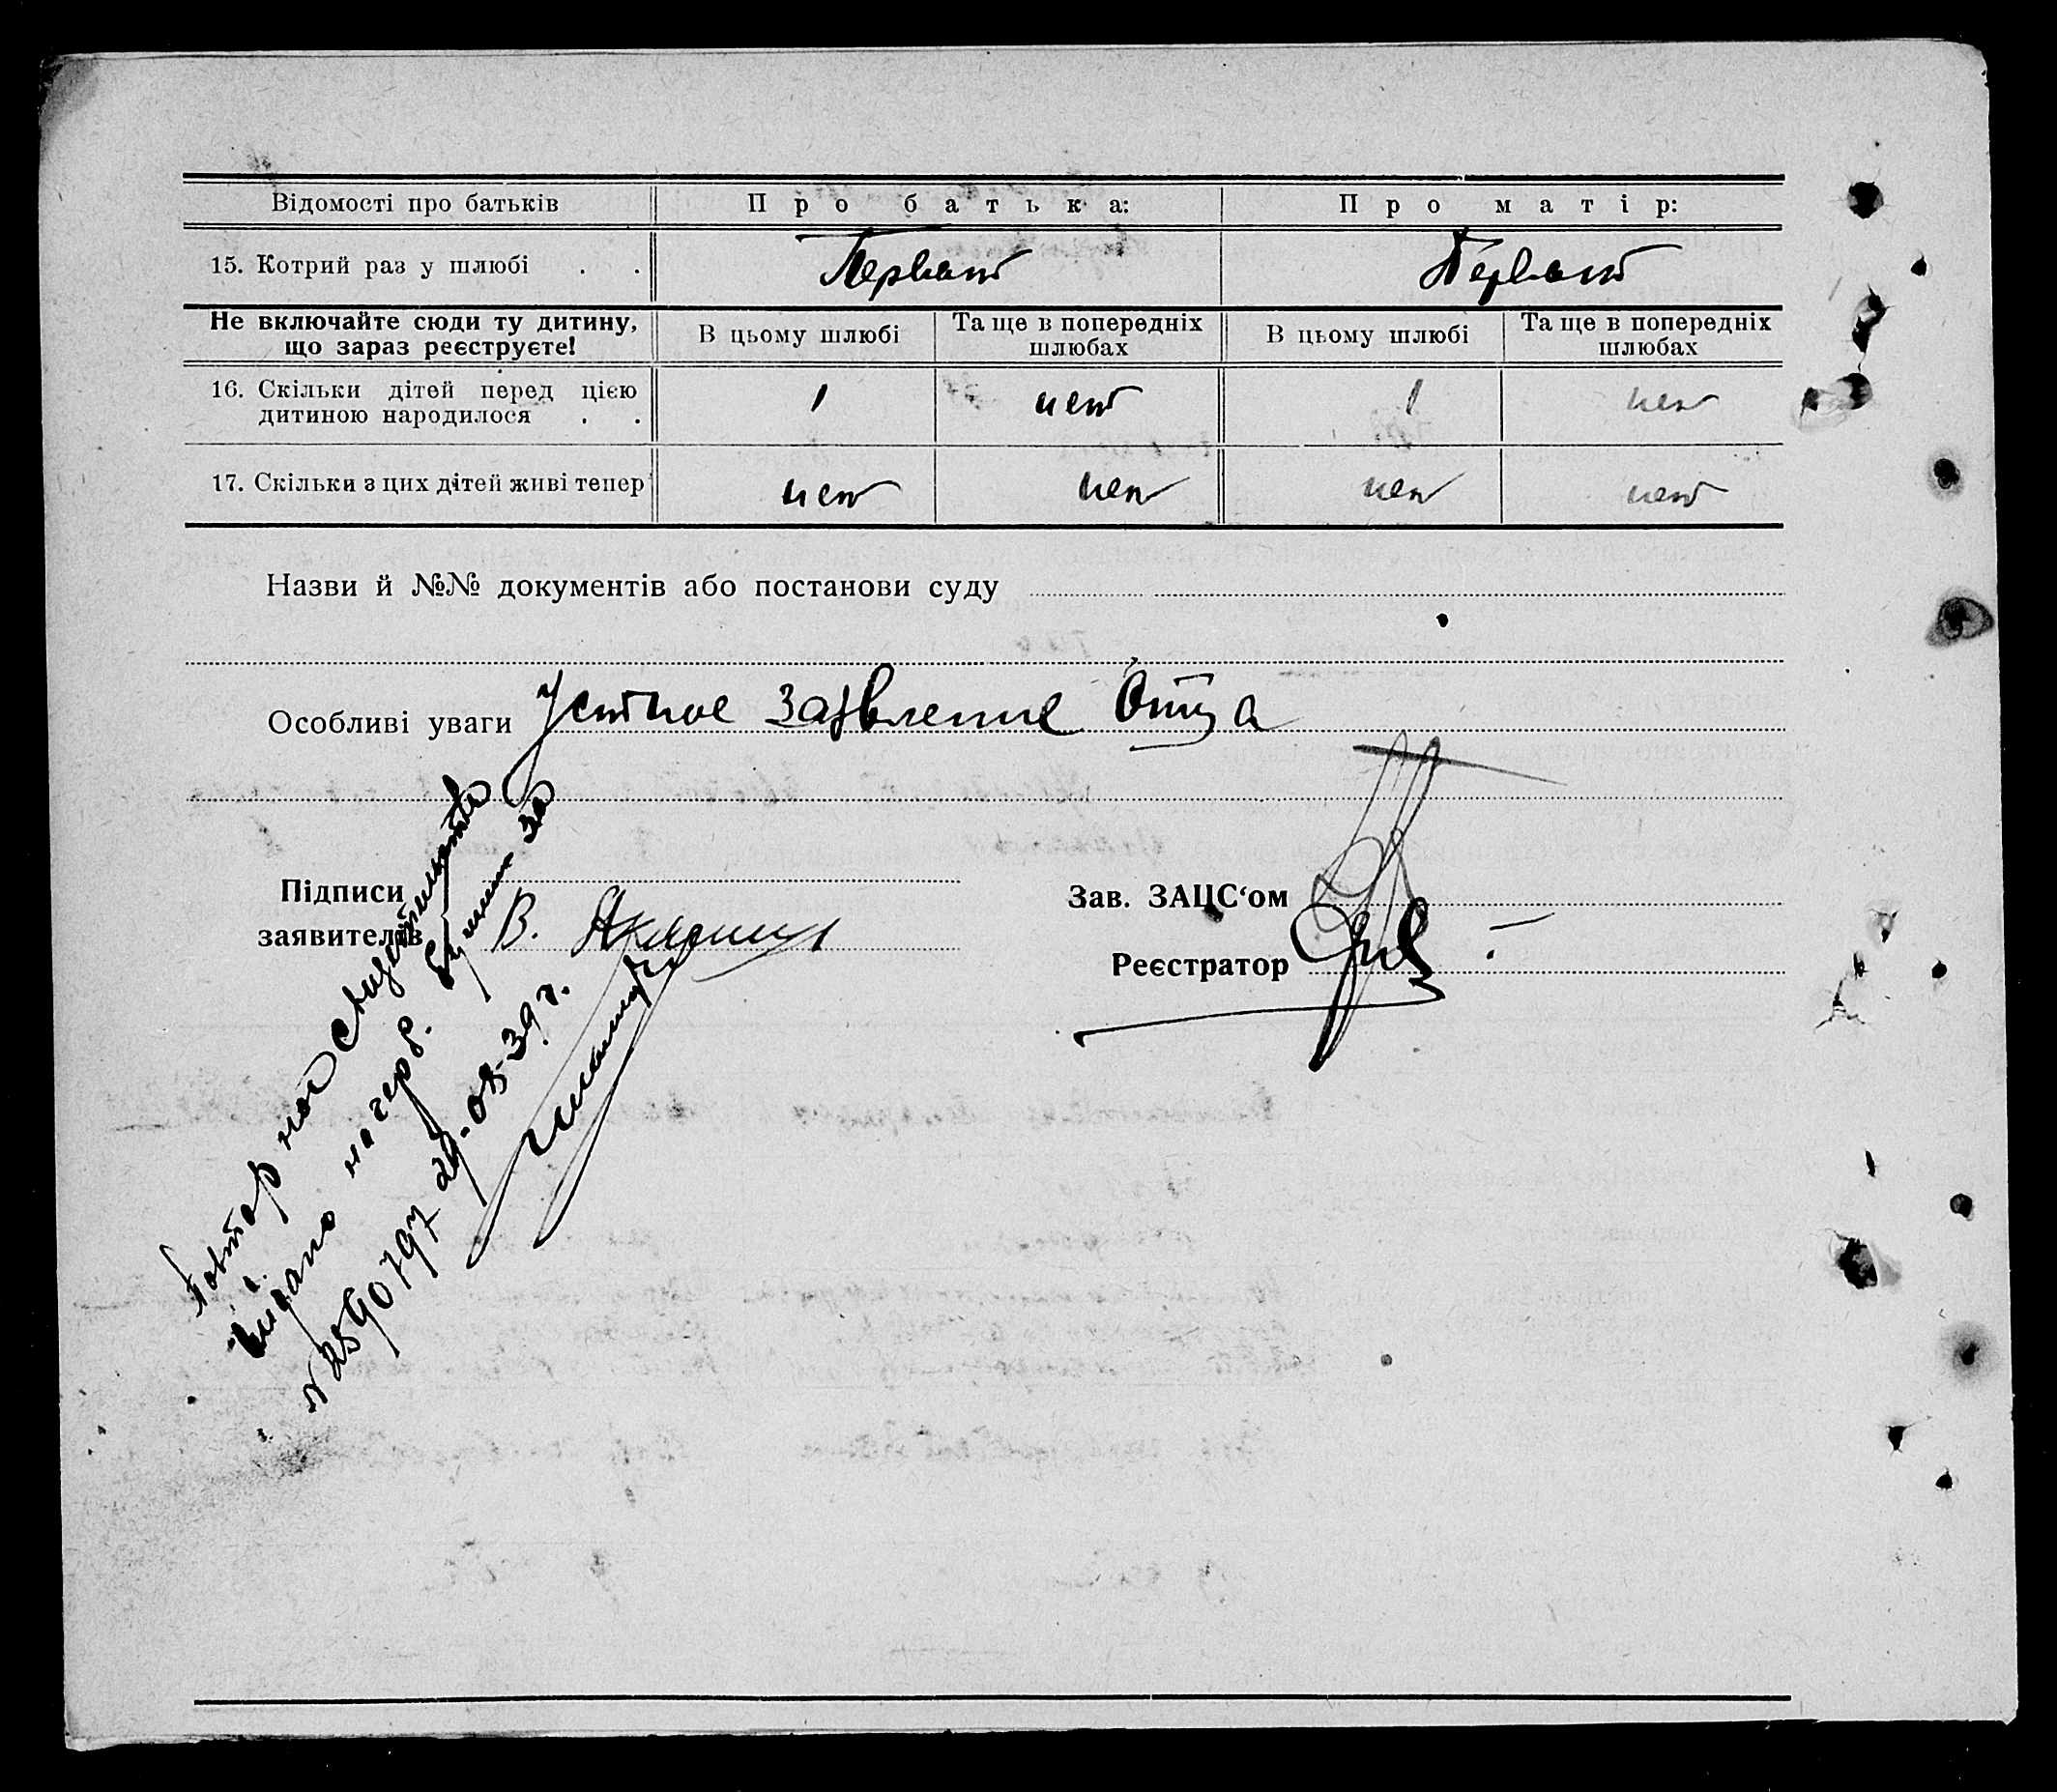 Відомості про батьків
Про батька:
Про матір:
15. Котрий раз у шлюбі . .
Первый
Первый
Не включайте сюди ту дитину,
що зараз реєструєте!
В цьому шлюбі
Та ще в попередніх
шлюбах
В цьому шлюбі
Та ще в попередніх
шлюбах
16. Скільки дітей перед цією
дитиною народилося . .
1
нет
1
нет
17. Скільки з цих дітей живі тепер
нет
нет
нет
нет
Назви й №№ документів або постанови суду
Особливі уваги Устное заявление Отца
Підписи
заявителів
В.
Зав. ЗАЦС‘ом
Реєстратор
Повторное свидетельство
выдано на герб. бумаге за
№ 2890797 29-08-39 г.